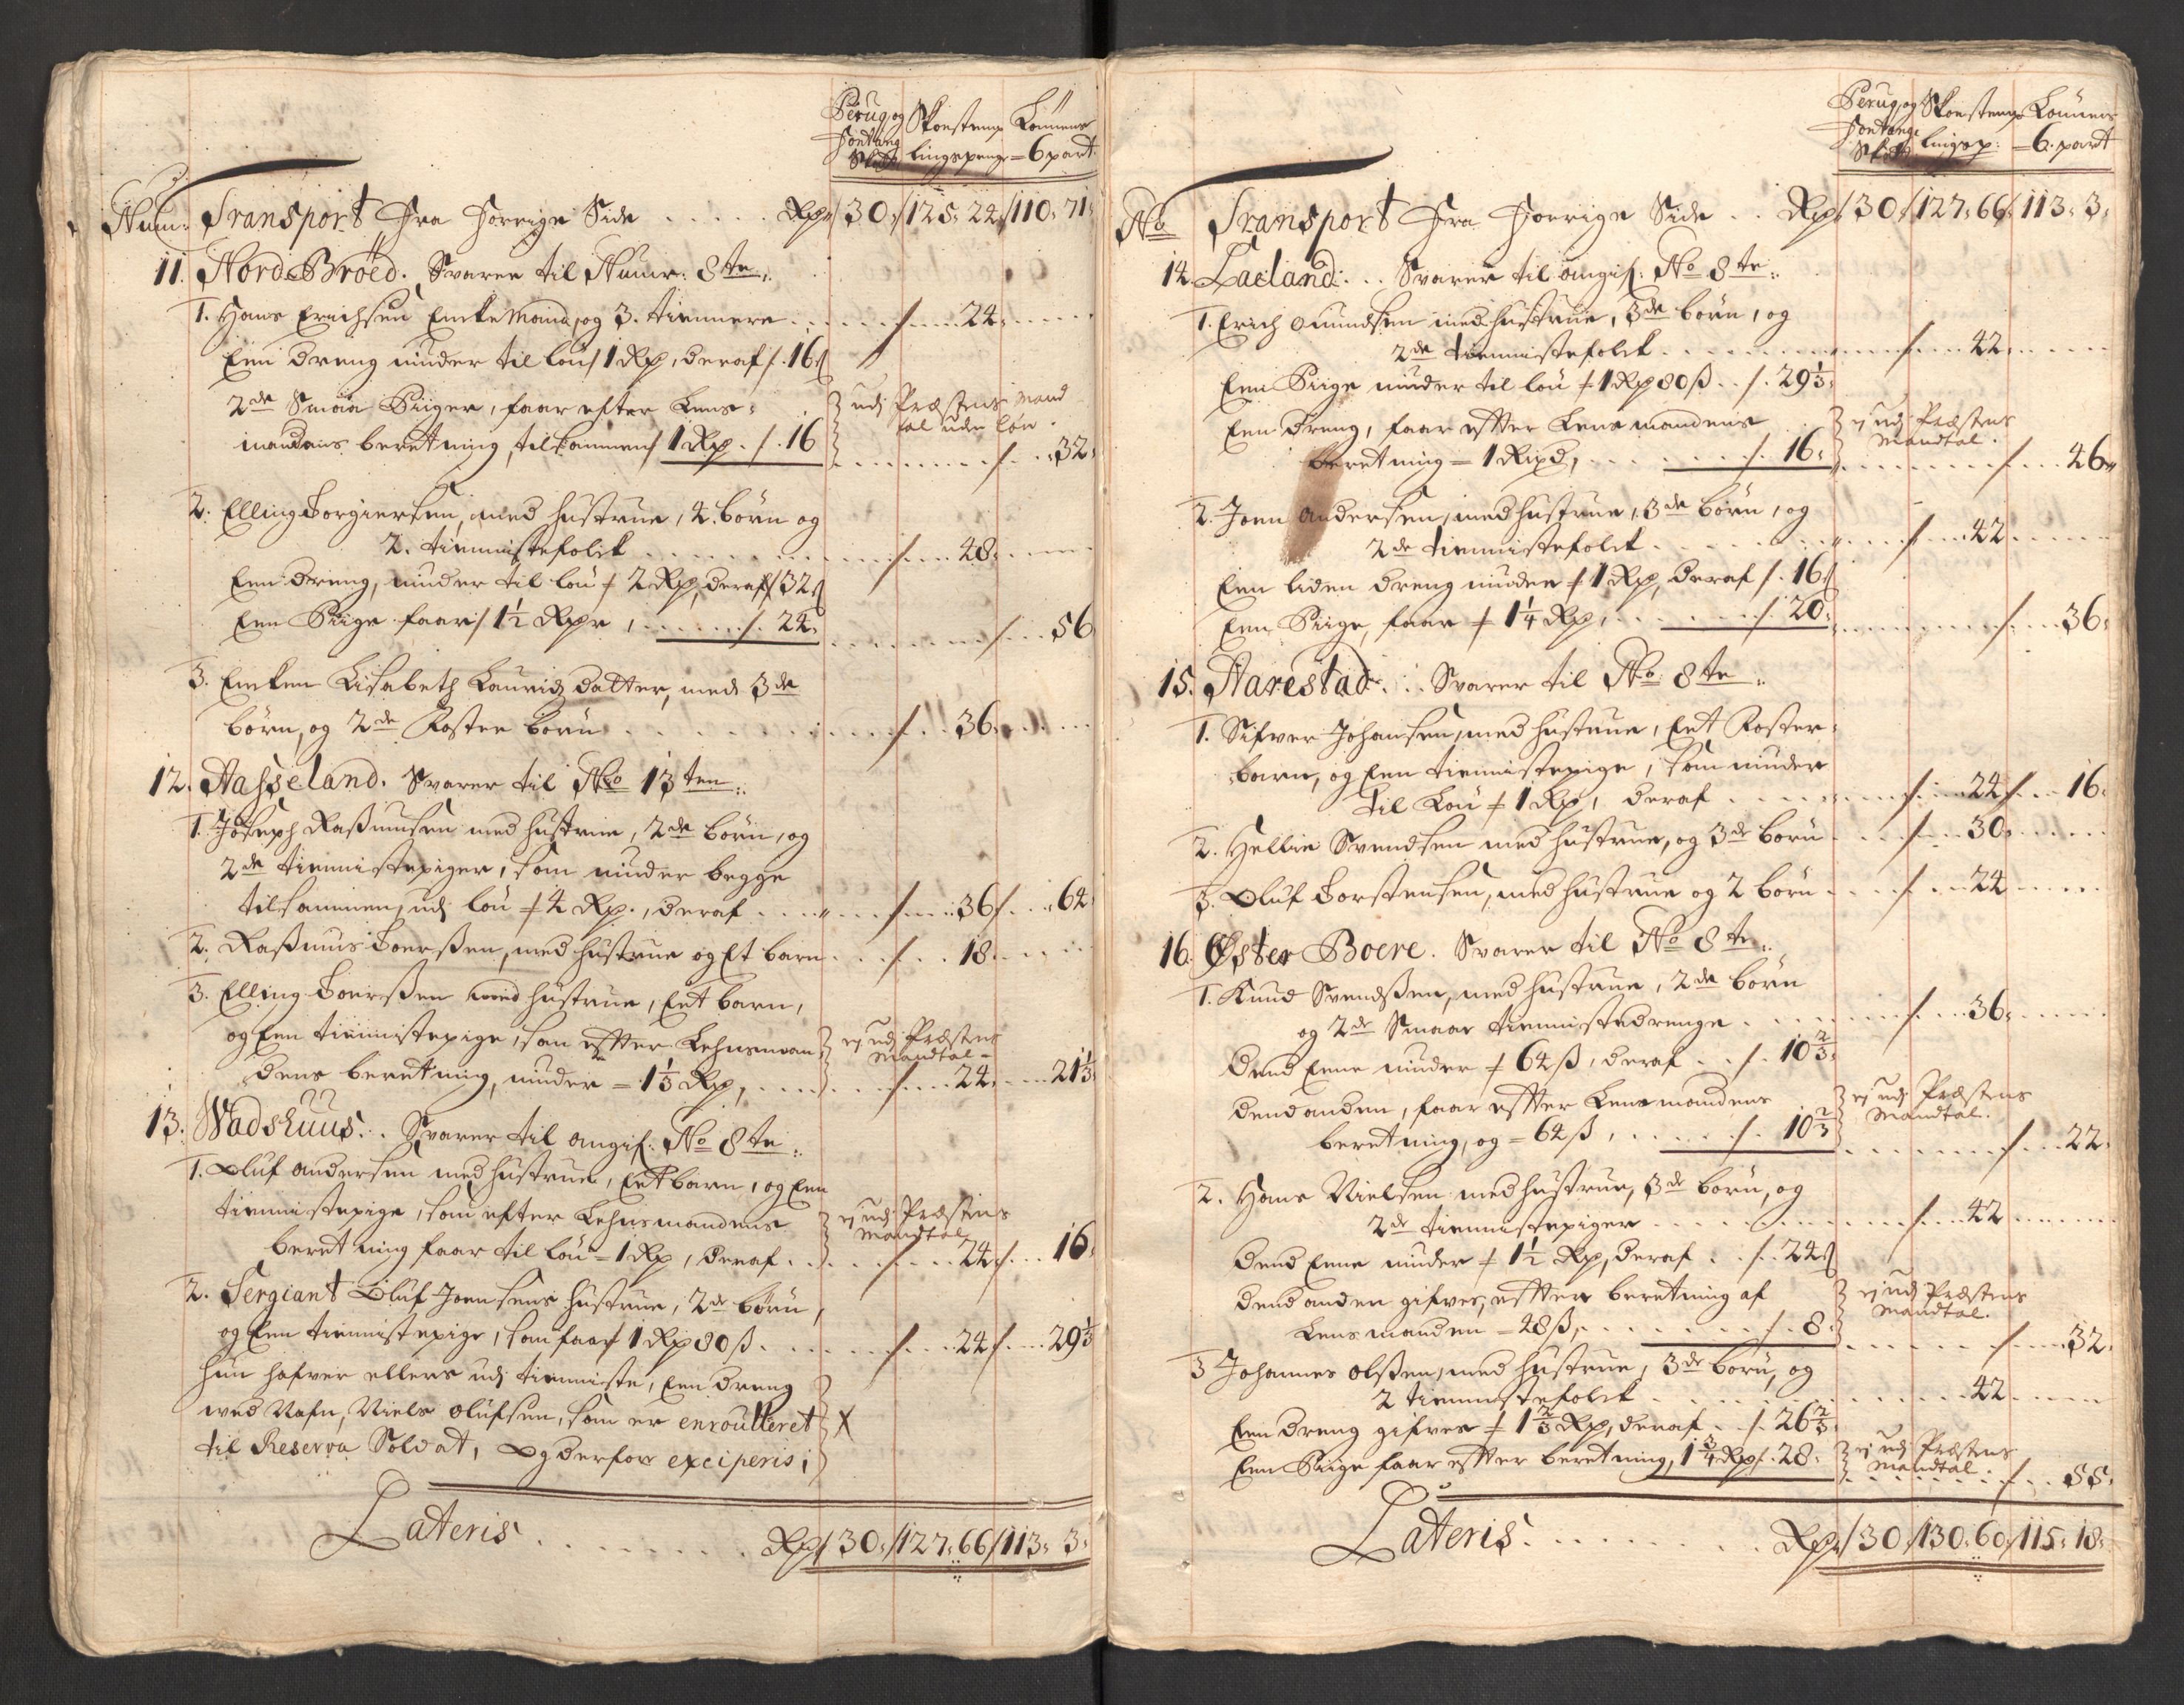 Perug og Skorstens Lönnens
Fontange
Skatt lingspenge = 6 part.
Num: Transport Fra Forrige Side ..... Rd 30 / 125: 24 / 110: 71
11. Nord-Bröed. Svarer til Num: 8te
1. Hans Erichsen Enckemand, og 3. tiennere ... / ... 24
Een dreng nÿder til lön / 1 Rd, deraf / 16 ß
2de Smaa Piiger, faar efter Lens=
mandens beretning, tilsammen / 1 Rd / 16
udj Præstens Mand
tal uden lön.
/ ... 32
2. Elling Torgiersen, med hustrue, 4. börn og
2. tiennistefolck ... / ... 48
Een dreng, nÿder til lön / 2 Rd, deraf / 32 ß
Een Piige faar / 1½ Rdr, ... / 24
/ ... 56
3. Encken Lisabeth Lauridz datter, med 3de
börn, og 2de Foster börn ... / ... 36
12. Aasseland. Svarer til No 13ten
1. Joseph Rasmusen med hustrue, 2de börn, og
2de tiennistepiger, som nÿder begge
tilsammen, udj lön / 4 Rd., deraf ... / ... 36 / ... 64
2. Rasmus Toersen, med hustrue og Et barn ... / ... 18
3. Elling Toersen med hustrue, Eet barn,
og Een tiennistepige, som efter Lehnsman
dens beretning, nÿder = 1⅓ Rd, ... / ... 24 ... 21⅓
ej udj Præstens
Mandtal
13. Wadshuus. Svarer til angif: No 8te
1. Oluf Andersen med hustrue, Eet barn, og Een
tiennistepige, som efter Lehnsmandens
beretning faar til lön = 1 Rd, deraf ... / ... 24 / ... 16
ej udj Præstens
Mandtal
2. Sergiant Oluf Joensens hustrue, 2de börn,
og Een tiennistepige, som faar / 1 Rd 80 ß ... / ... 24 / ... 29⅓
hun hafver ellers udj tienniste, Een dreng
ved Nafn, Niels Olufsen, som er enroulleret X
til Reserva Soldat, og derfor exciperis;
Lateris ....... Rd 30 / 127: 66 / 113: 3
Perug og Skorstens Lönnens
Fontange
Skatt lingsp: = 6. part
No Transport Fra Forrige Side .. Rd 30 / 127: 66 / 113: 3
14. Laeland ... Svarer til angif: No 8te
1. Erich Omundsen med hustrue, 3de börn, og
2de tiennistefolck ... / ... 42
Een Piige nÿder til lön / 1 Rd 80 ß .. / 29⅓
Een dreng, faar efter Lensmandens
beretning = 1 Rixd, ... / 16
ej udj Præstens
Mandtal.
/ ... 46
2. Joen Andersen, med hustrue, 3de börn, og
2de tiennistefolck ... / ... 42
Een liden dreng nÿder / 1 Rd, deraf / 16 ß
Een Piige, faar / 1¼ Rd, ... / 20
/ ... 36
15. Aarestad ... Svarer til No 8te
1. Sifver Johansen, med hustrue, Eet Foster=
barn, og Een tiennistepige, som nÿder
til Lön / 1 Rd, deraf ... / ... 24 / ... 16
2. Hellie Svendsen med hustrue, og 3de börn ... / ... 30
3. Oluf Torstensen, med hustrue og 2 börn ... / ... 24
16. Øster Boere. Svarer til No 8te
1. Knud Svendsen, med hustrue, 2de börn
og 2de Smaae tiennistedrenge ... / ... 36
Dend Eene nÿder / 64 ß, deraf .. / 10⅔
dend anden, faar efter Lensmandens
beretning, og = 64 ß, ... / 10⅔
ej udj Præstens
Mandtal.
/ ... 22
2. Hans Nielsen med hustrue, 3de börn, og
2de tiennistepiger ... / ... 42
Dend Eene nÿder / 1½ Rd, deraf .. / 24 ß
dend anden gifves, efter beretning af
Lensmanden = 48 ß, ... / 8
ej udj Præstens
Mandtal.
/ ... 32
3 Johannes Olsen, med hustrue, 3de börn, og
2 tiennistefolck ... 42
Een dreng gifves / 1⅔ Rd, deraf .. / 26⅔
Een Piige faar efter beretning, 1¾ Rd / 28
ej udj Præstens
Mandtal.
/ ... 55
Lateris ....... Rd 30 / 130: 60 / 115: 18